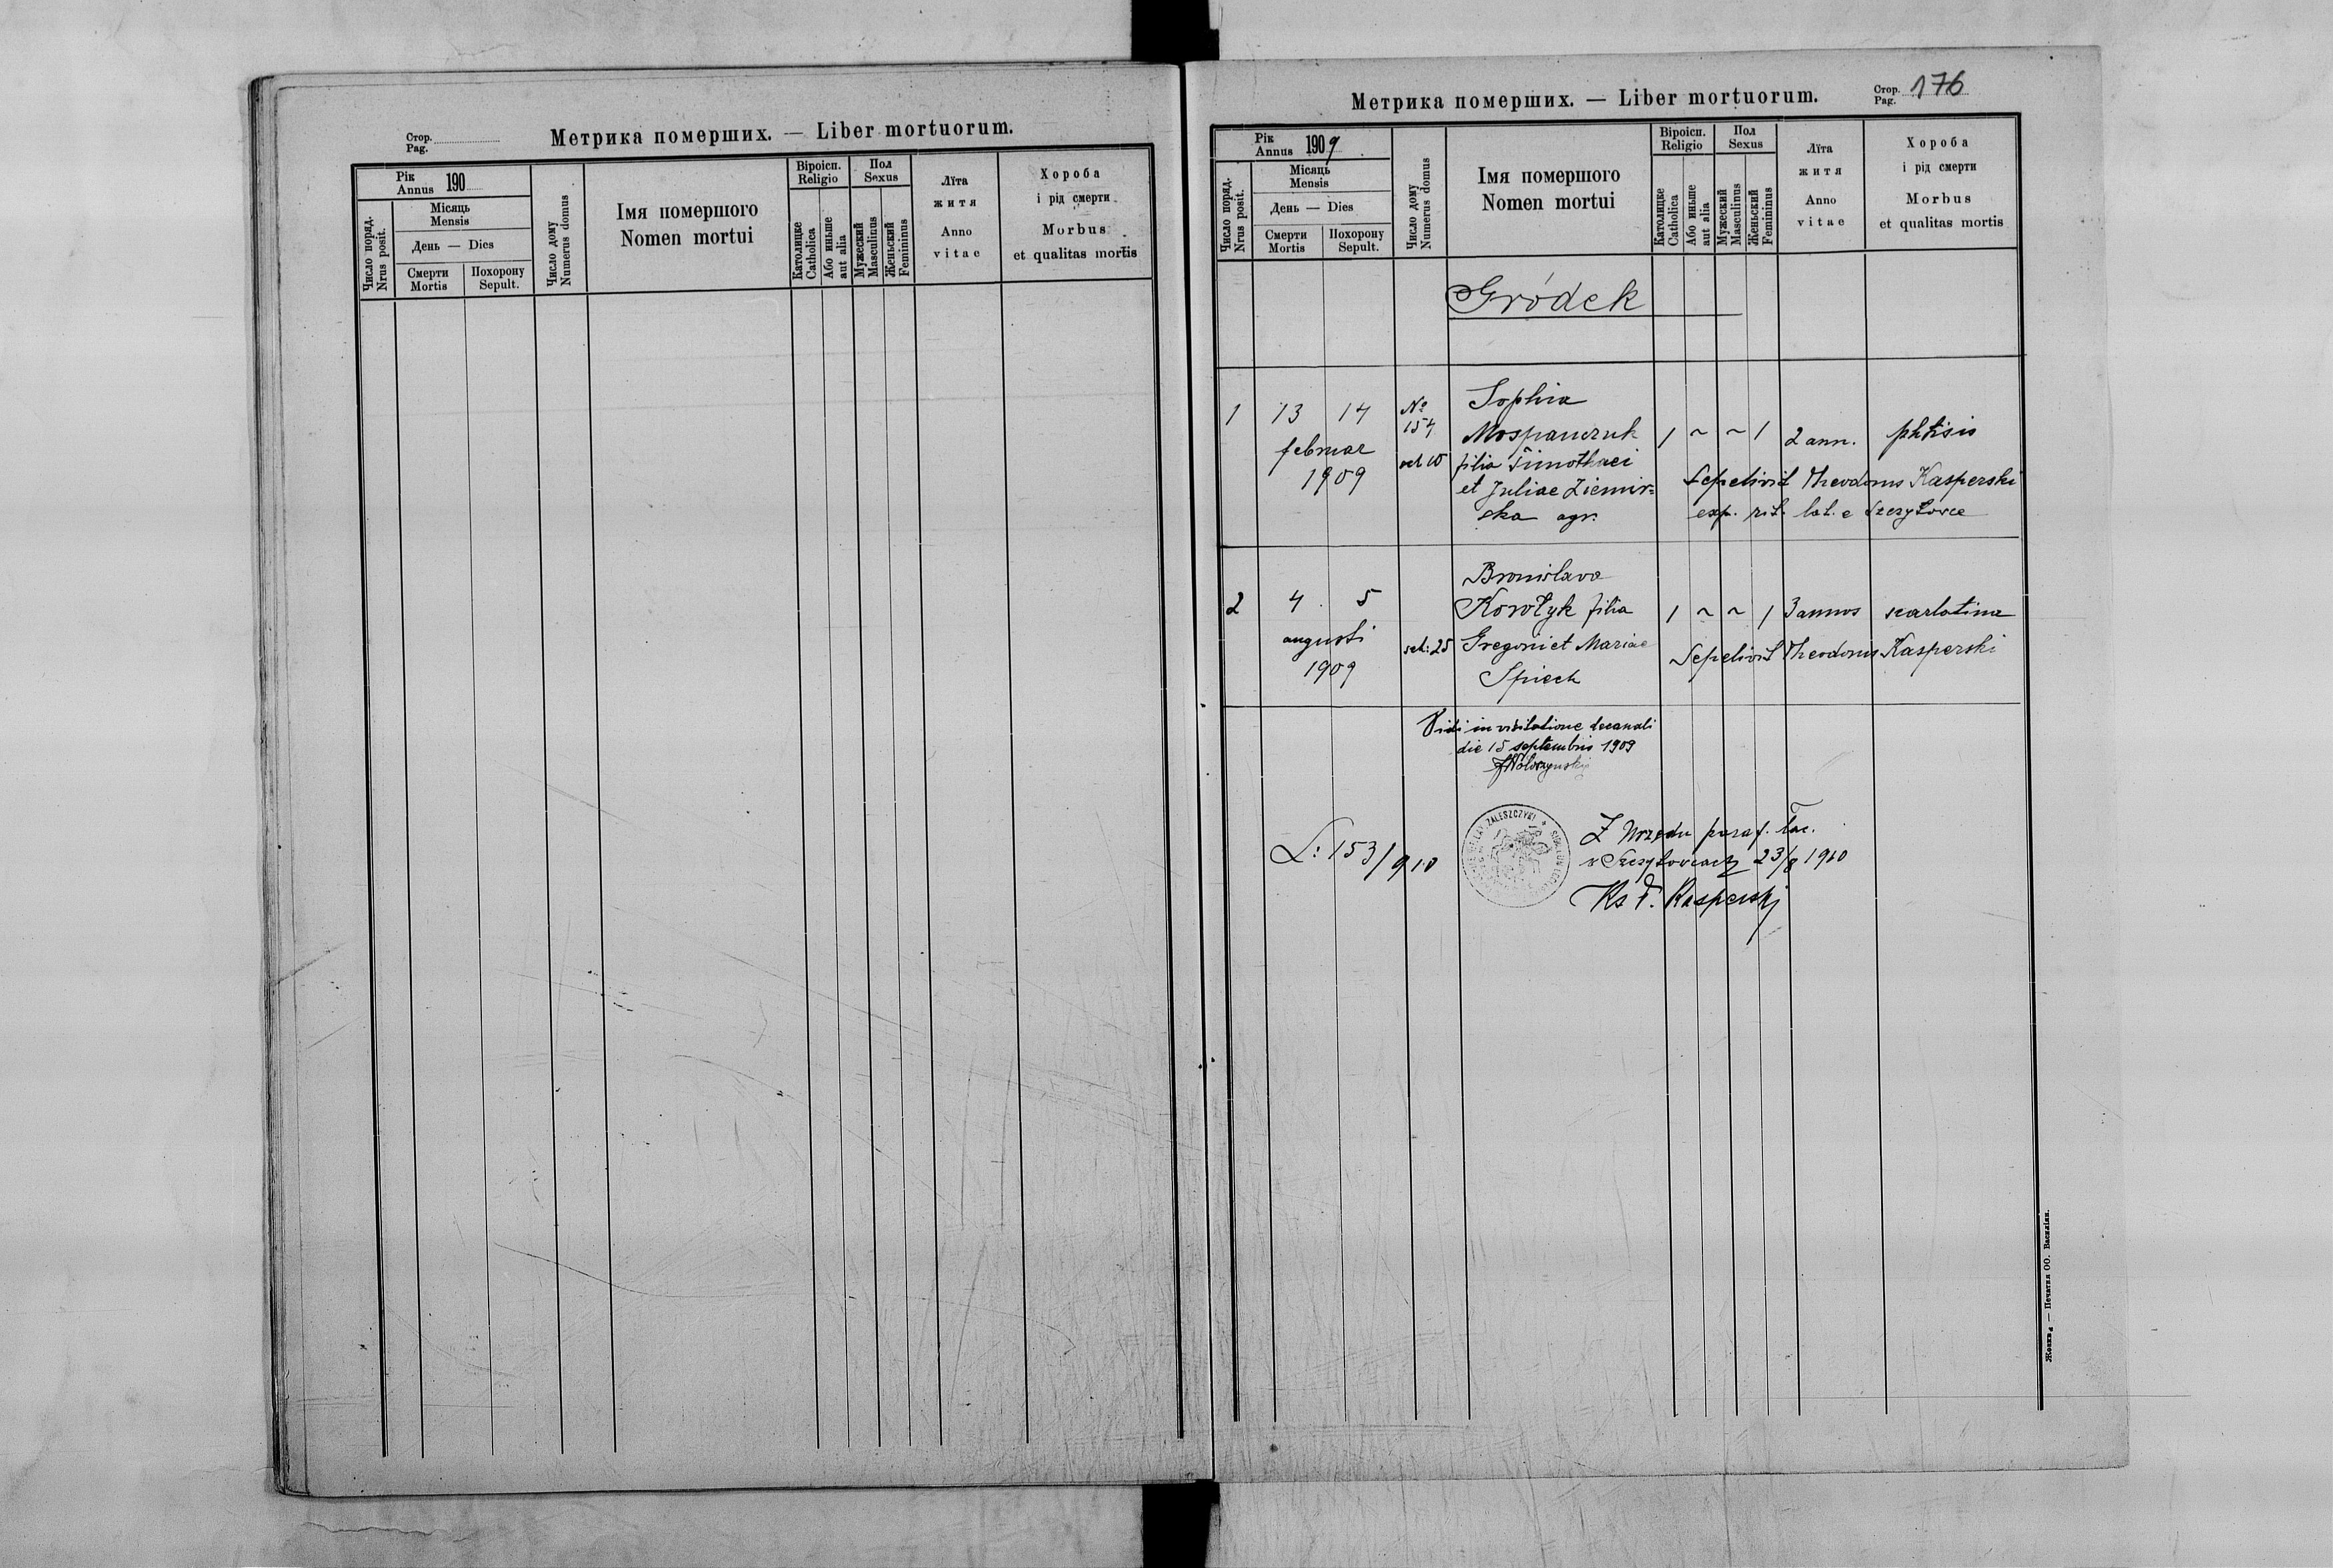 Стор.
Pag.
Метрика померших. — Liber mortuorum.
Рік
Annus 190
Число поряд.
Nrus posit.
Місяць
Mensis
День — Dies
Смерти
Mortis
Похорону
Sepult.
Число дому
Numerus domus
Імя помершого
Nomen mortui
Віроісп.
Religio
Католицке
Catholica
Або иньше
aut alia
Пол
Sexus
Мужеский
Masculinus
Женьский
Femininus
Лїта
житя
Anno
vitae
Хороба
і рід смерти
Morbus
et qualitas mortis
Метрика померших. — Liber mortuorum.
Стор.
Pag. 176
Рік
Annus 1909
Число поряд.
Nrus posit.
Місяць
Mensis
День — Dies
Смерти
Mortis
Похорону
Sepult.
Число дому
Numerus domus
Імя помершого
Nomen mortui
Віроісп.
Religio
Католицке
Catholica
Або иньше
aut alia
Пол
Sexus
Мужеский
Masculinus
Женьский
Femininus
Лїта
житя
Anno
vitae
Хороба
і рід смерти
Morbus
et qualitas mortis
Gródek
1 13 14
februar
1909
№
154
Sophia
Mospanczuk
filia Timothaei
et Juliae Ziemir=
ska agr.
1 ~ ~ 1 2 ann. phtisis
Sepelivit Theodorus Kasperski
exp. rit. lat. e Szczytowce
2 4 5
augusti
1909
sch: 25
Bronislava
Korotyk filia
Gregorii et Mariae
Spiech
1 ~ ~ 1 3 annos scarlatina
Sepelivit Theodorus Kasperski
Vidi in visitatione decanali
die 15 septembris 1909
L: 153/910
ZALESZCZYKI
Z Urzędu paraf. łac.
w Szczytowcach 23/8 1910
Ks T. Kasperski
Жовква — Печатня ОО. Василіян.